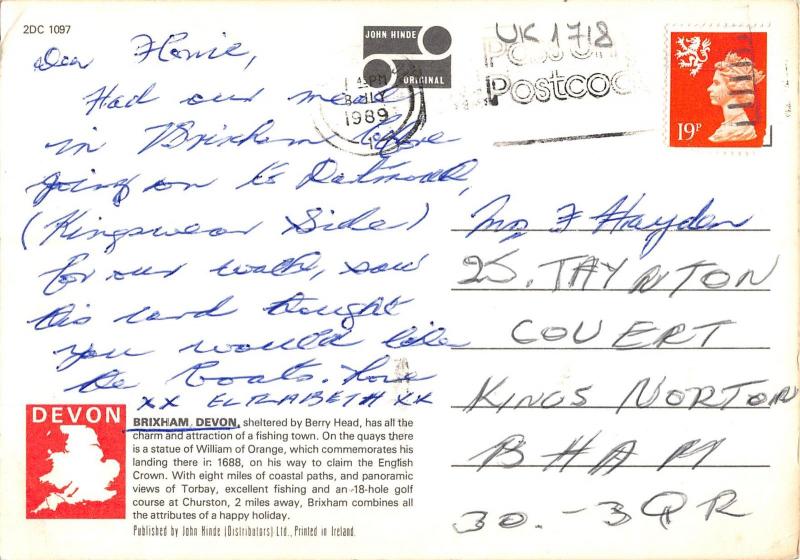 2DC 1097
JOHN HINDE
ORIGINAL
UK 1718
Postcod
PM
1989
19P
Dear Florrie,
Had our meal
in Brixham before
going on to Dartmouth,
(Kingswear Side)
for our walk, saw
this card thought
you would like
the boats. Love
XX ELIZABETH XX
Mrs F Hayden
25. TAYNTON
COVERT
KINGS NORTON
BHAM
30.-3QR
DEVON
BRIXHAM, DEVON, sheltered by Berry Head, has all the
charm and attraction of a fishing town. On the quays there
is a statue of William of Orange, which commemorates his
landing there in 1688, on his way to claim the English
Crown. With eight miles of coastal paths, and panoramic
views of Torbay, excellent fishing and an 18-hole golf
course at Churston, 2 miles away, Brixham combines all
the attributes of a happy holiday.
Published by John Hinde (Distributors) Ltd., Printed in Ireland.